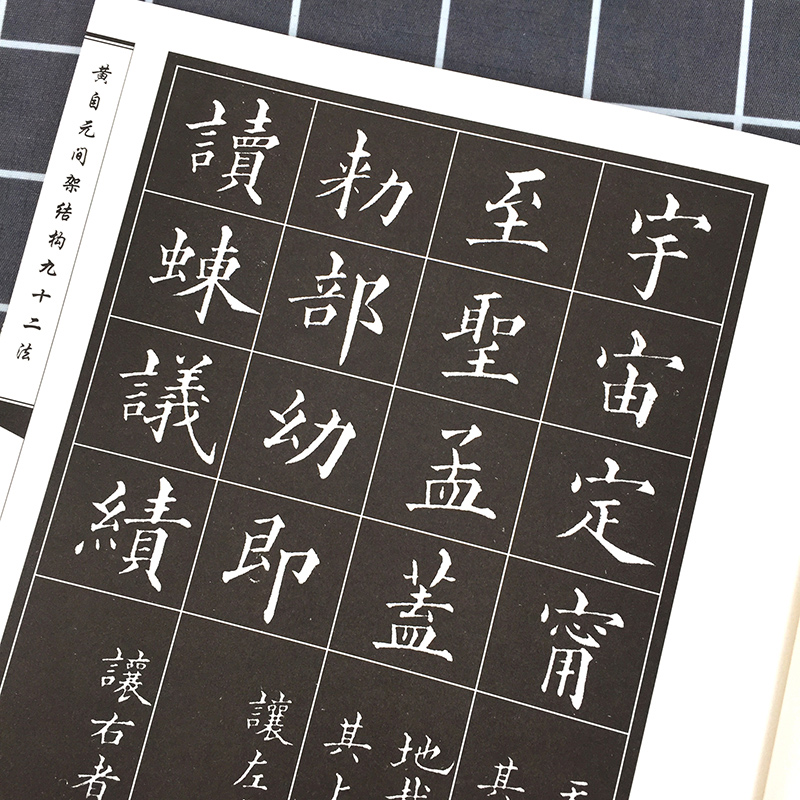 黄自元间架结构九十二法
宇宙定甯
天
其
至聖孟蓋
地載
其上
勅部幼即
讓左
讀蝀議績
讓右者